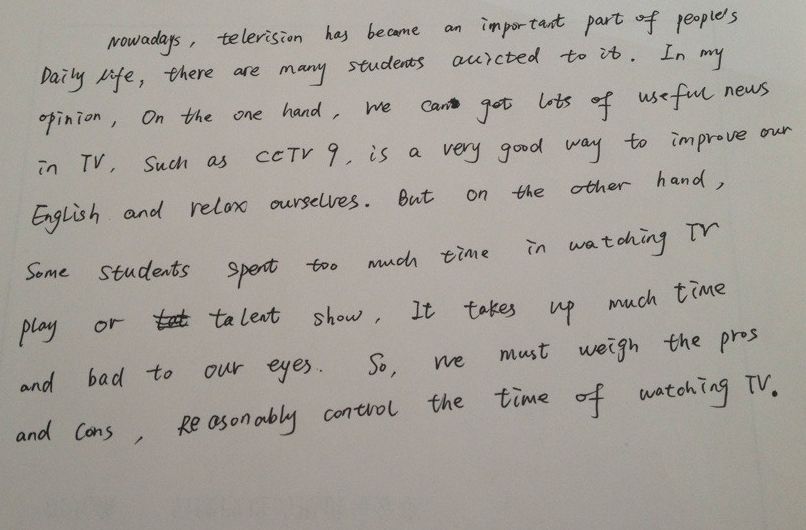 Nowadays, television has became an important part of people's
Daily life, there are many students addicted to it. In my
opinion, On the one hand, we can get lots of useful news
in TV. Such as CCTV 9, is a very good way to improve our
English and relax ourselves. But on the other hand,
Some students spent too much time in watching TV
play or talent show, It takes up much time
and bad to our eyes. So, we must weigh the pros
and cons, Reasonably control the time of watching TV.